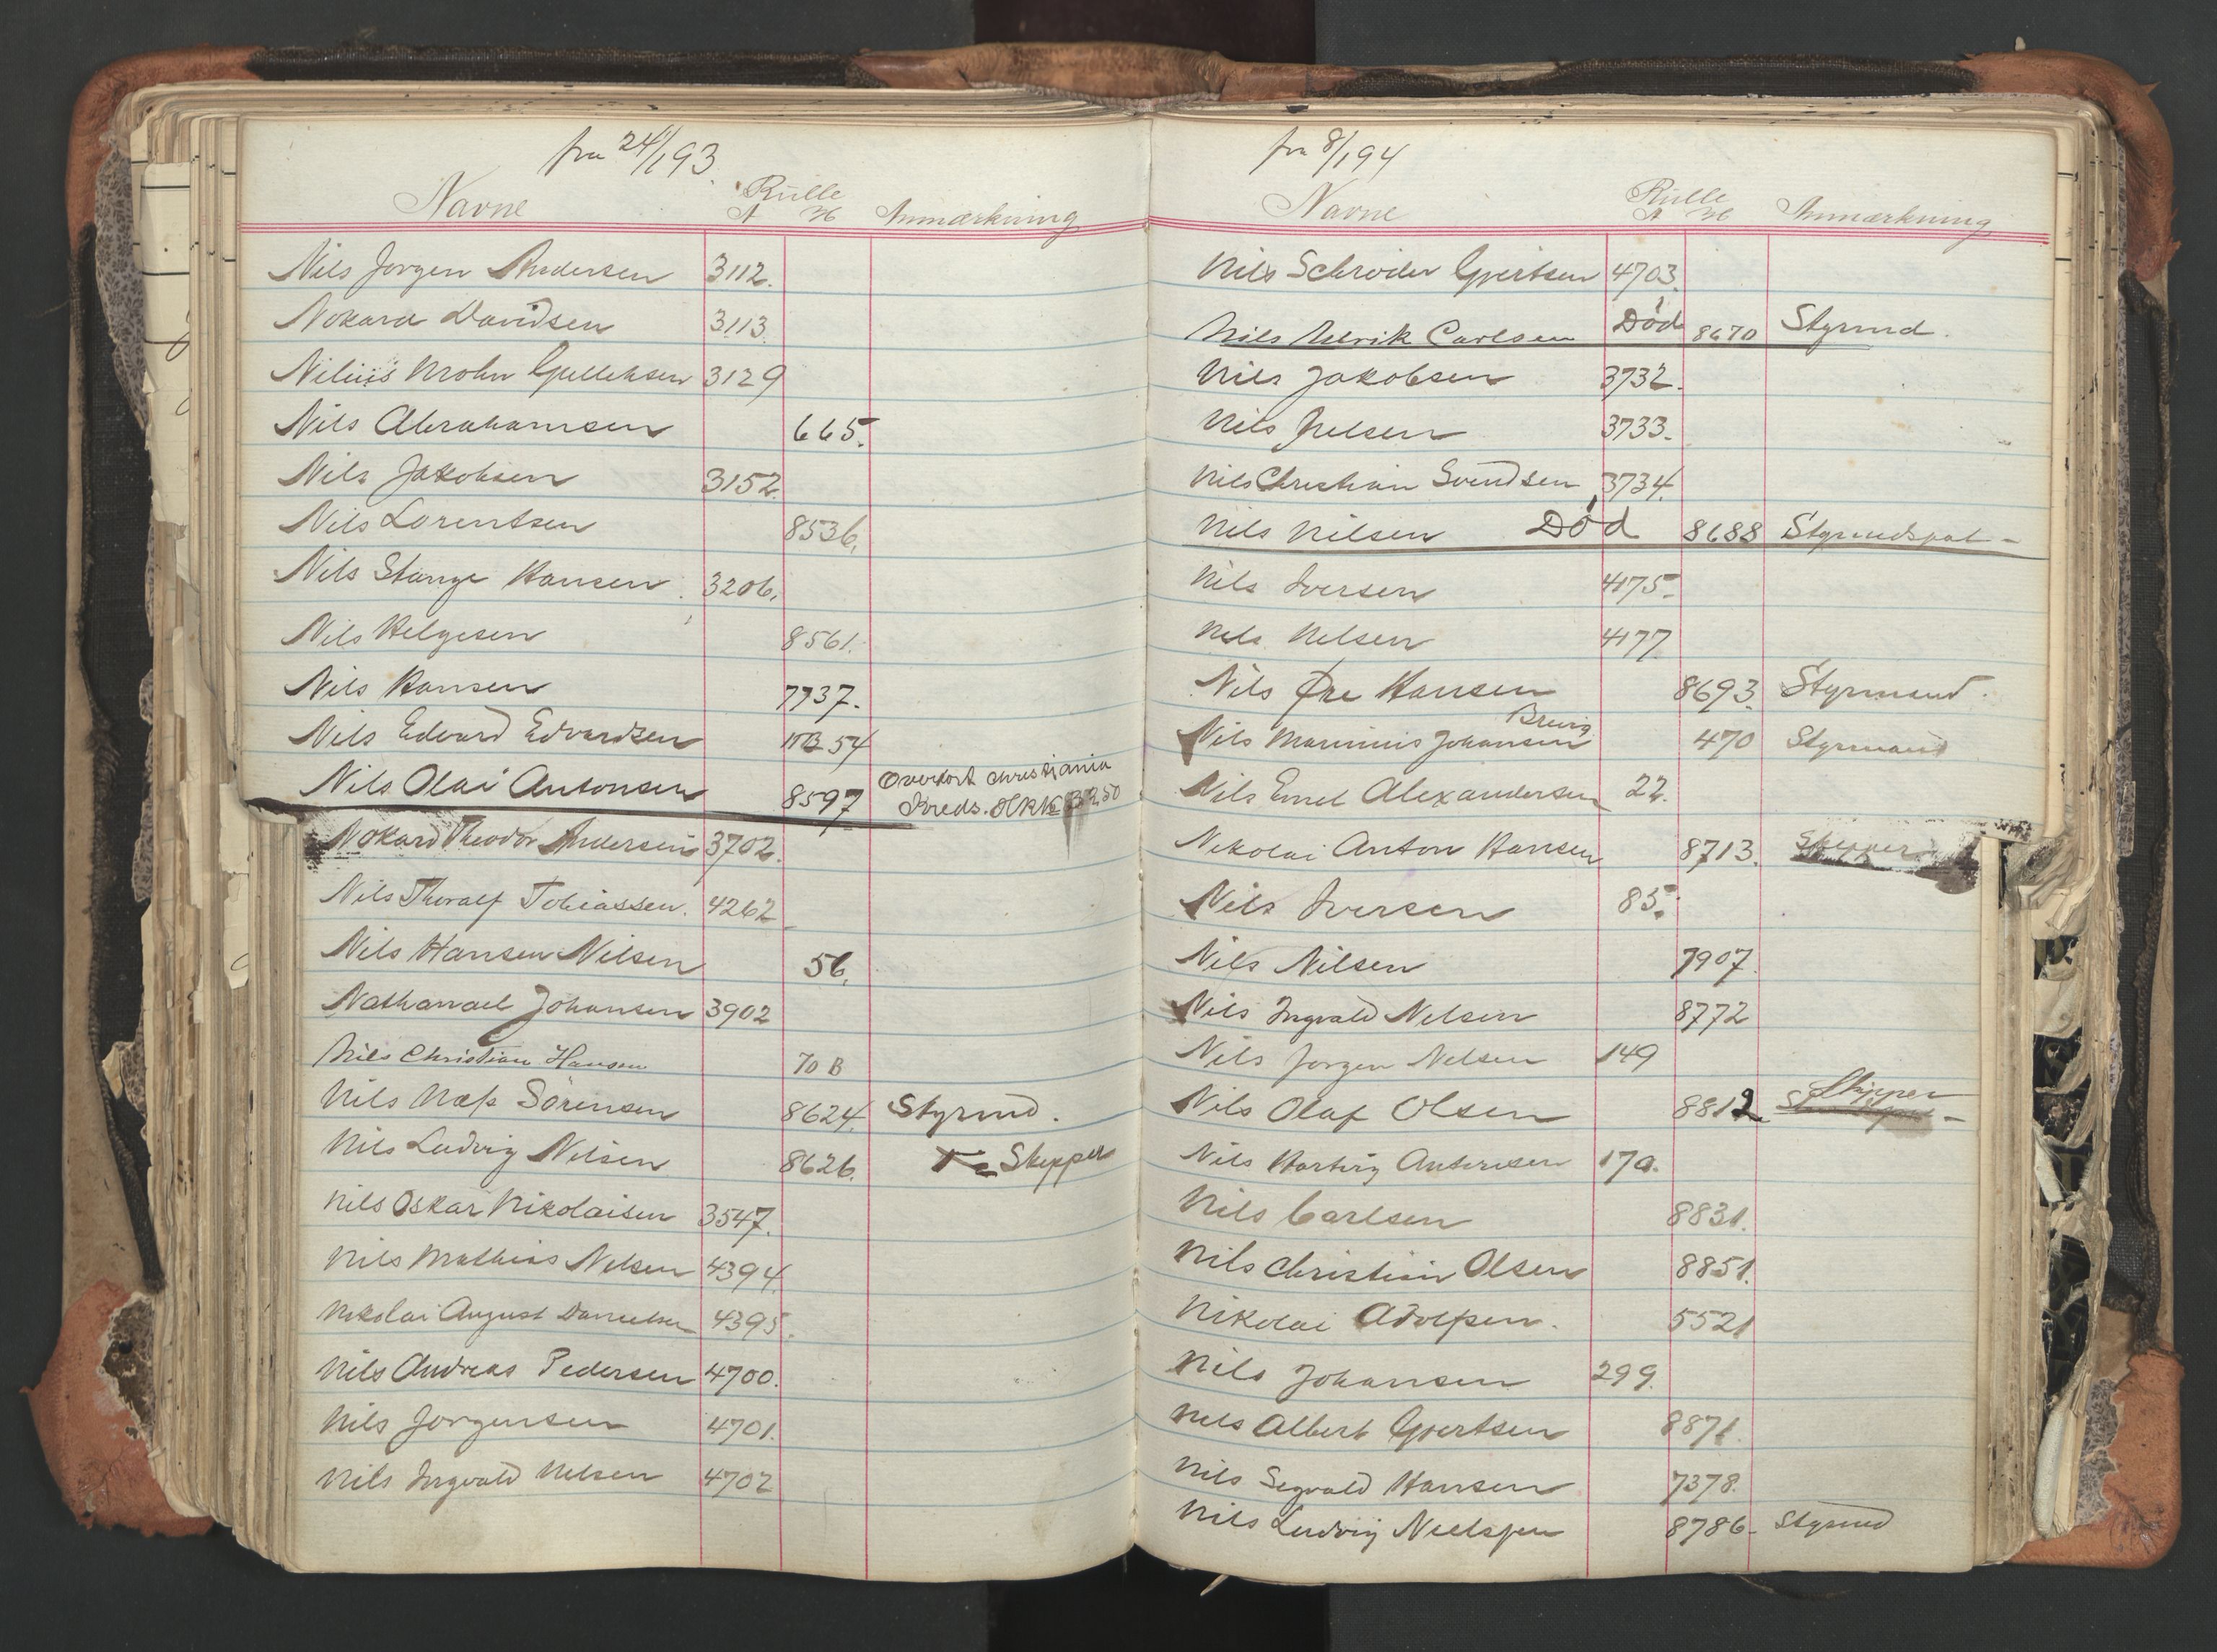 fra 24/1 93.
Navne Rulle Anmærkning
A
Nils Jørgen Andersen 3112.
Nokard Davidsen 3113.
Nilius Mohn Gulliksen 3129
Nils Abrahamsen 665.
Nils Jakobsen 3152.
Nils Lorentsen 8536.
Nils Stange Hansen 3206.
Nils Helgesen 8561.
Nils Hansen 7737.
Nils Edvard Edvardsen 54
Nils Olai Antonsen 8597 Overført Christiania
Kreds.
Nokard Theodor Andersen 3702.
Nils Thoralf Tobiassen. 4262
Nils Hansen Nilsen 56.
Nathanael Johansen 3902
Nils Christian Hansen 70 B
Nils Næss Sørensen 8624. Styrmd.
Nils Ludvig Nilsen 8626. Skipper
Nils Oskar Nikolaisen 3547.
Nils Mathias Nilsen 4394.
Nikolai August Danielsen 4395.
Nils Andreas Pedersen 4700.
Nils Jørgensen 4701.
Nils Ingvald Nilsen 4702
fra 8/1 94
Navne Rulle Anmærkning
A
Nils Schrøder Gjertsen 4703.
Nils Ulrik Carlsen Død 8670 Styrmd.
Nils Jakobsen 3732.
Nils Nilsen 3733.
Nils Christian Svendsen 3734.
Nils Nilsen Død 8688
Nils Iversen 4175.
Nils Nilsen 4177
Nils Øre Hansen 8693. Styrmand.
Brevig
Nils Marinius Johansen 470 Styrmand
Nils Emil Alexandersen 22.
Nikolai Anton Hansen 8713. Skipper
Nils Iversen 85.
Nils Nilsen 7907.
Nils Ingvald Nilsen 8772
Nils Jørgen Nilsen 149
Skipper
Nils Olaf Olsen 8812
Nils Hartvig 170.
Nils Carlsen 8831.
Nils Christian Olsen 8851.
Nikolai Adolfsen. 5521
Nils Johansen 299.
Nils Albert Gjertsen 8871.
Nils Segvald Hansen 7378.
Nils Ludvig Neelssen 8786. Styrmd